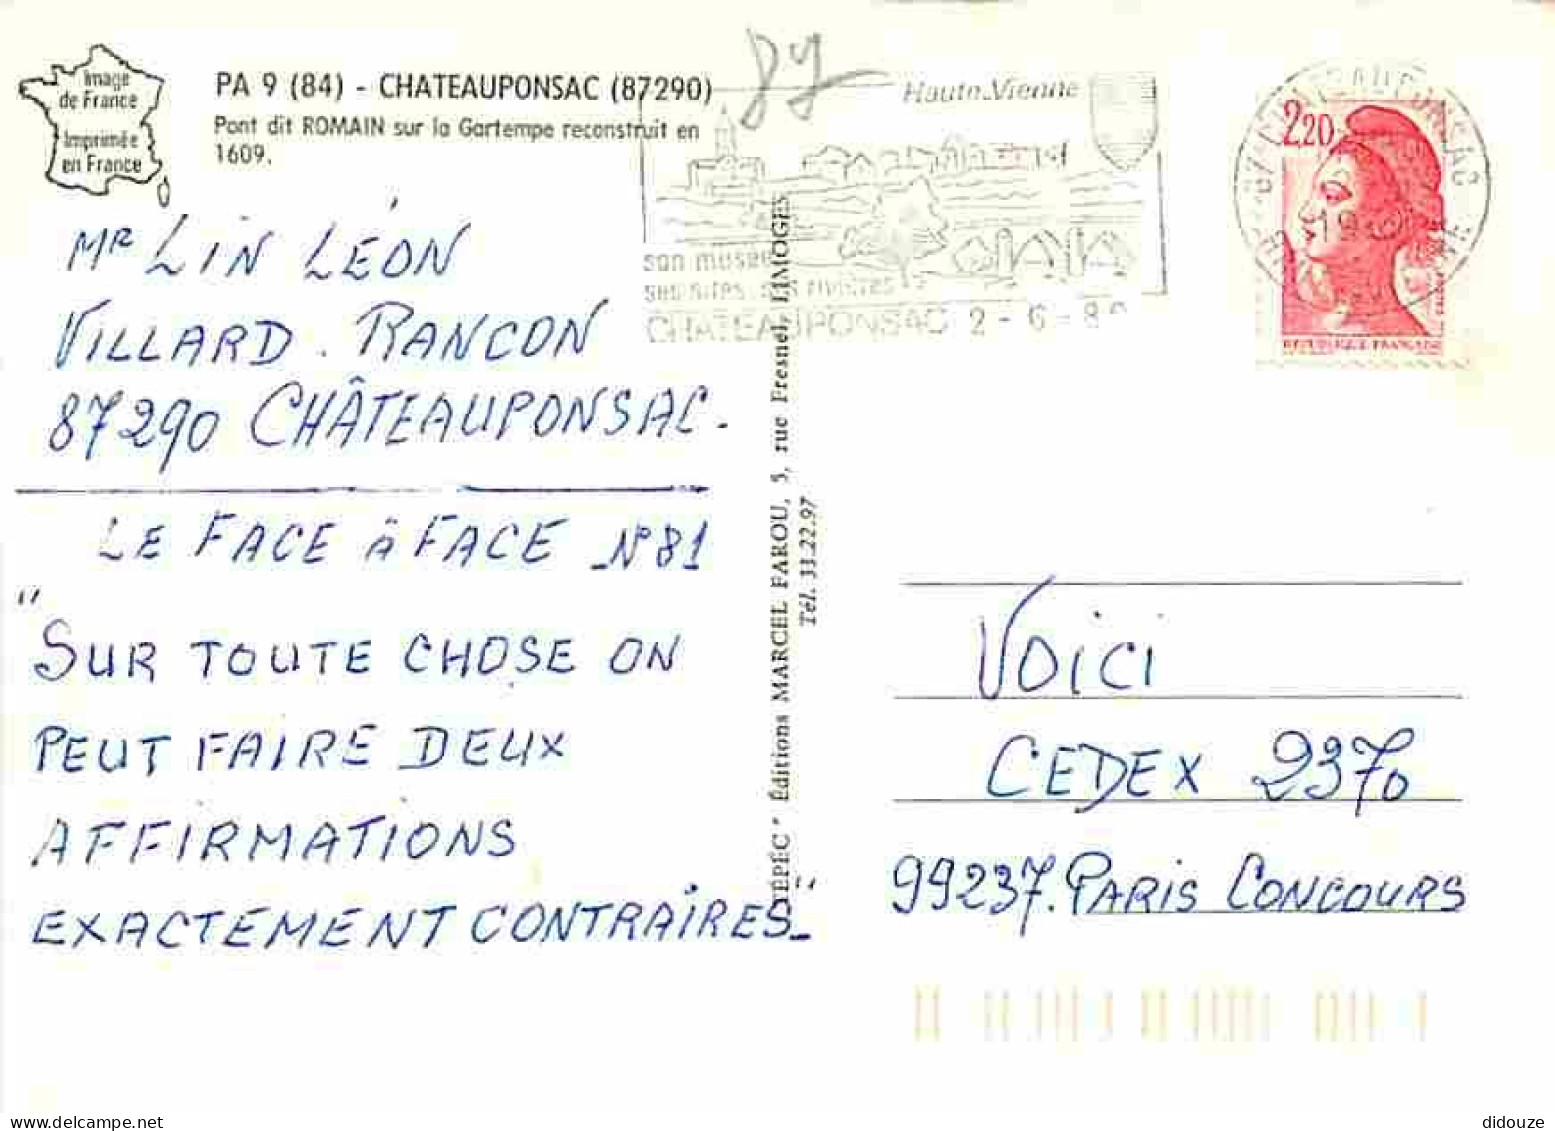 Image
de France
Imprimée
en France
PA 9 (84) - CHATEAUPONSAC (87290)
Pont dit ROMAIN sur la Gartempe reconstruit en
1609.
Haute-Vienne
son musée
ses sites, ses rivières
CHATEAUPONSAC 2 - 6 - 8
2,20
REPUBLIQUE FRANÇAISE
Mr LIN LÉON
VILLARD. RANCON
87290 CHÂTEAUPONSAC.
LE FACE à FACE N°81
"SUR TOUTE CHOSE ON
PEUT FAIRE DEUX
AFFIRMATIONS
EXACTEMENT CONTRAIRES"
"TÉPÉC" Éditions MARCEL FAROU, 5, rue Fresnel, LIMOGES
Tél. 33.22.97
VOICI
CEDEX 2370
99237. PARIS CONCOURS
didouze